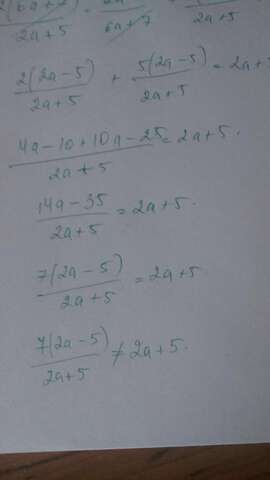 2(6a+7) / 2a+5 = 2a / 6a+7
2(2a-5) / 2a+5 + 5(2a-5) / 2a+5 = 2a+5
4a-10+10a-25 / 2a+5 = 2a+5.
14a-35 / 2a+5 = 2a+5.
7(2a-5) / 2a+5 = 2a+5.
7(2a-5) / 2a+5 ≠ 2a+5.